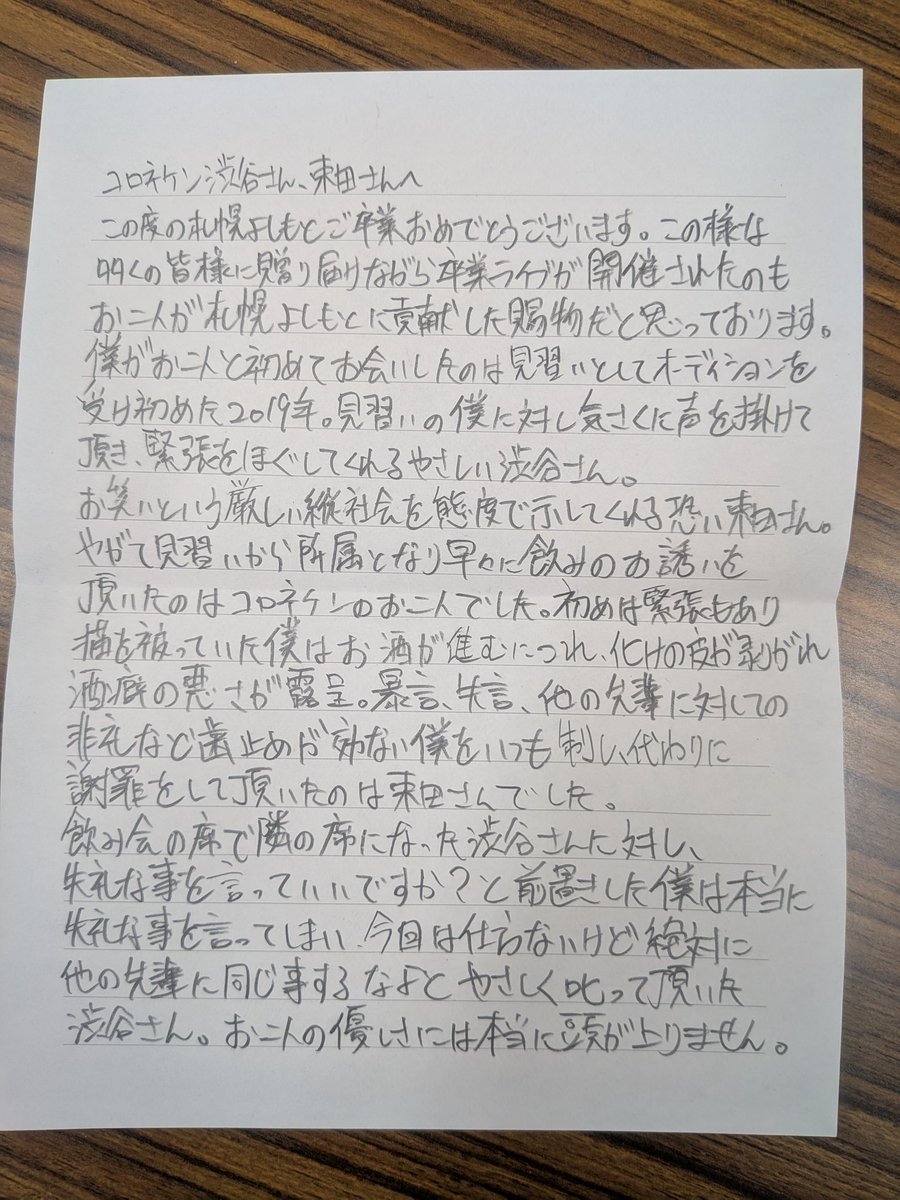 コロネケン渋谷さん、東田さんへ
この度の札幌よしもとご卒業おめでとうございます。この様な
多くの皆様に見送り届けながら卒業ライブが開催されたのも
お二人が札幌よしもとに貢献した賜物だと思っております。
僕がお二人と初めてお会いしたのは見習いとしてオーディションを
受け初めた2019年。見習いの僕に対し気さくに声を掛けて
頂き、緊張をほぐしてくれるやさしい渋谷さん。
お笑いという厳しい縦社会を態度で示してくれる恐い東田さん。
やがて見習いから所属となり早々に飲みのお誘いを
頂いたのはコロネケンのお二人でした。初めは緊張もあり
猫を被っていた僕はお酒が進むにつれ、化けの皮が剥がれ
酒癖の悪さが露呈。暴言、失言、他の先輩に対しての
非礼など歯止めが効ない僕をいつも制し、代わりに
謝罪をして頂いたのは東田さんでした。
飲み会の席で隣の席になった渋谷さんに対し、
失礼な事を言っていいですか?と前置きした僕は本当に
失礼な事を言ってしまい、今回は仕方ないけど絶対に
他の先輩に同じ事するなよとやさしく叱って頂いた
渋谷さん。お二人の優しさには本当に頭が上りません。